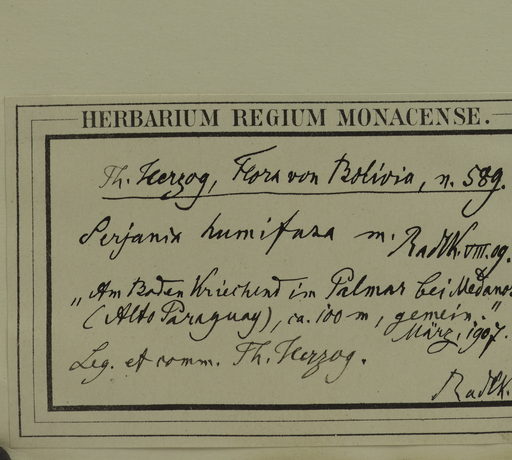 HERBARIUM REGIUM MONACENSE.
Th. Herzog, Flora von Bolivia, n. 589.
Serjania humifusa m. Radlk. VIII. 09.
„Am Boden kriechend im Palmar bei Medanos
(Alto Paraguay), ca. 100 m, gemein."
März, 1907.
Leg. et comm. Th. Herzog.
Radlk.